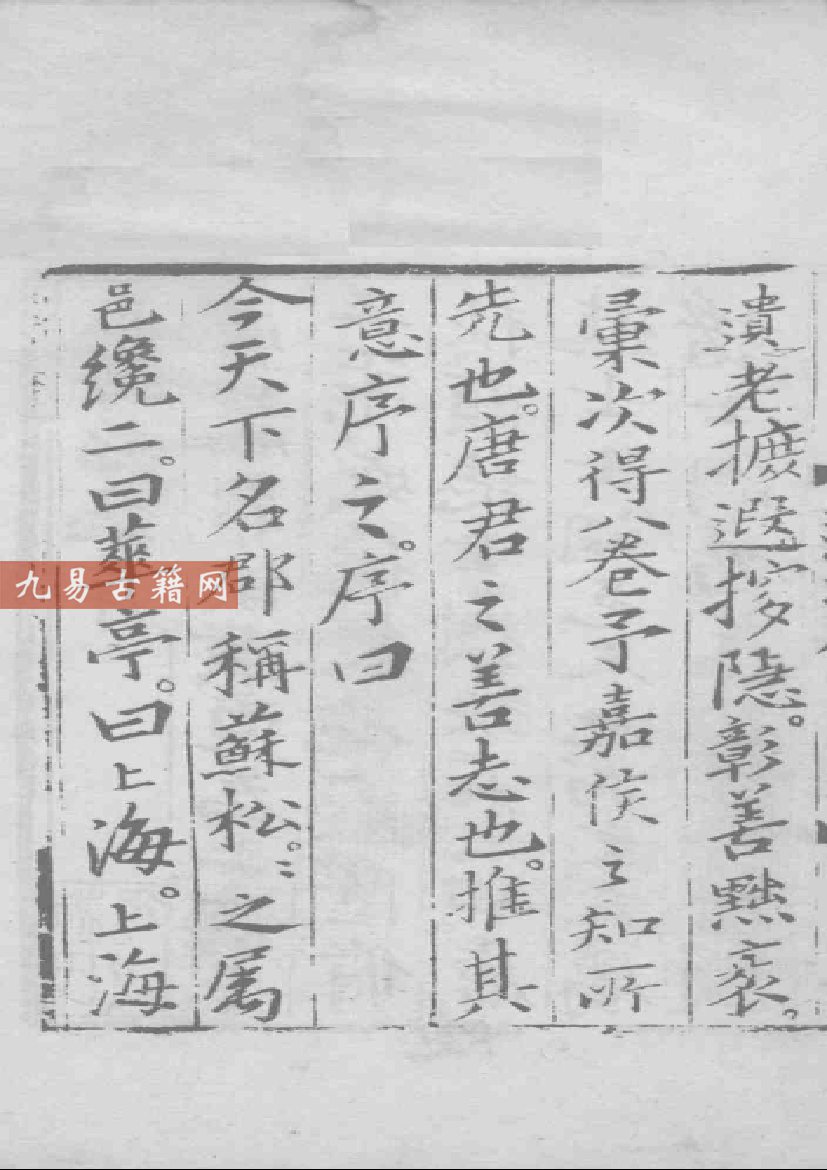 遺老摭遐搜隱。彰善黜袤。
彙次得八卷予嘉侯之知所
先也。唐君之善志也。推其
意序之。序曰
今天下名郡稱蘇松。〻之属
邑纔二。曰華亭。曰上海。上海
九易古籍网